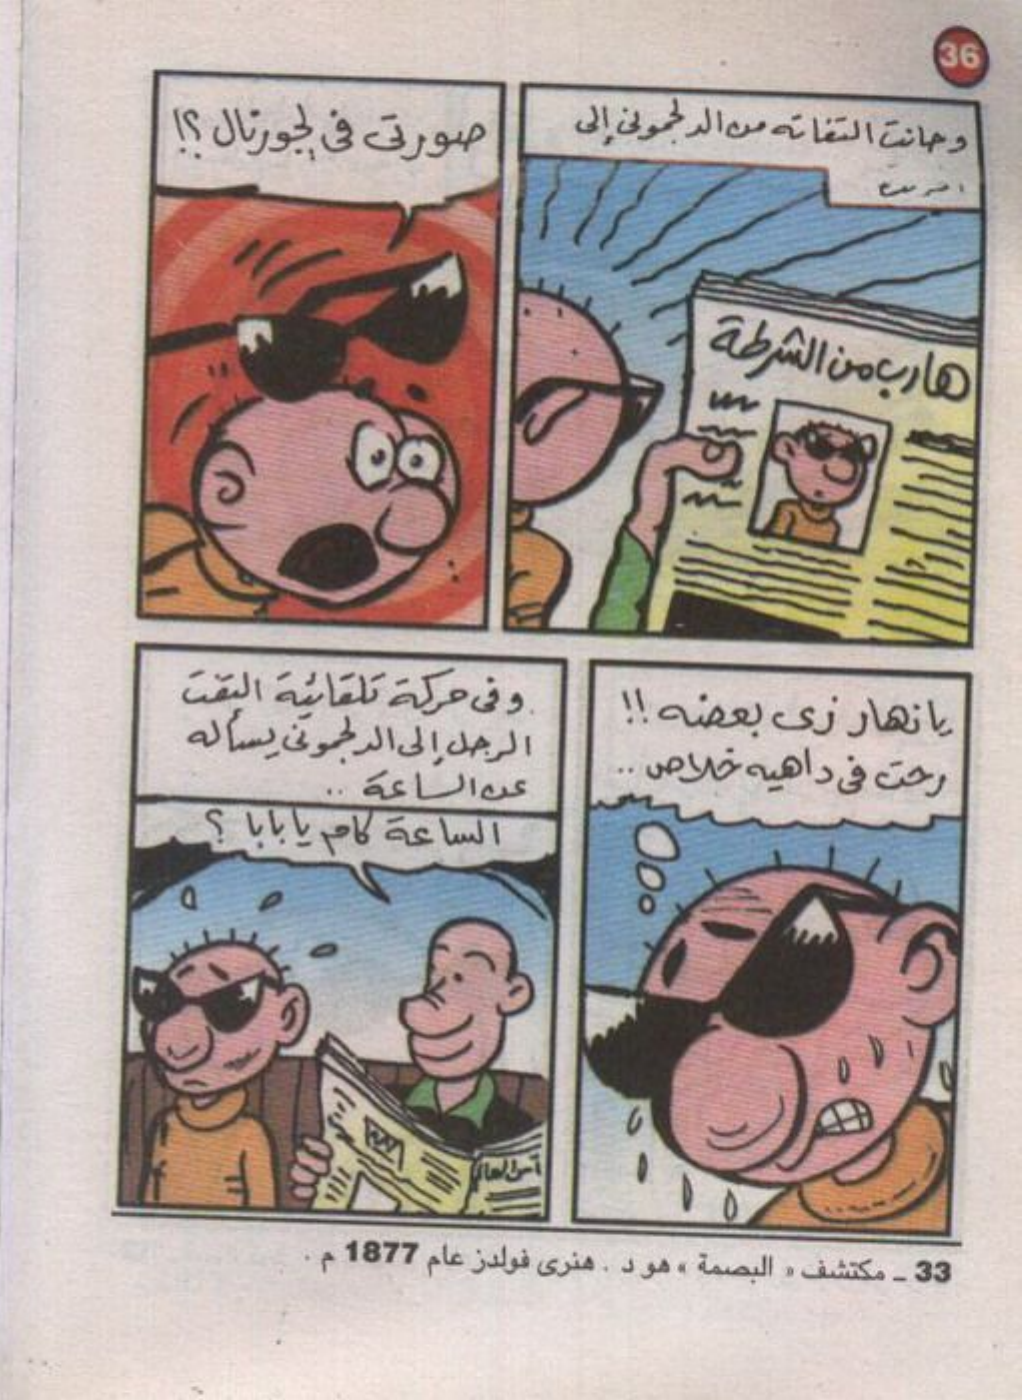 36
وحانت التفاته من الدلجمونى إلى
هارب من الشرطة
صورتى فى لجورنال ؟!
يا نهار زى بعضه !!
رحت فى داهيه خلاص ..
وفى حركة تلقائية التفت
الرجل إلى الدلجمونى يسأله
عن الساعة ..
الساعة كام يا بابا ؟
33 ــ مكتشف « البصمة » هو د . هنرى فولدز عام 1877 م .